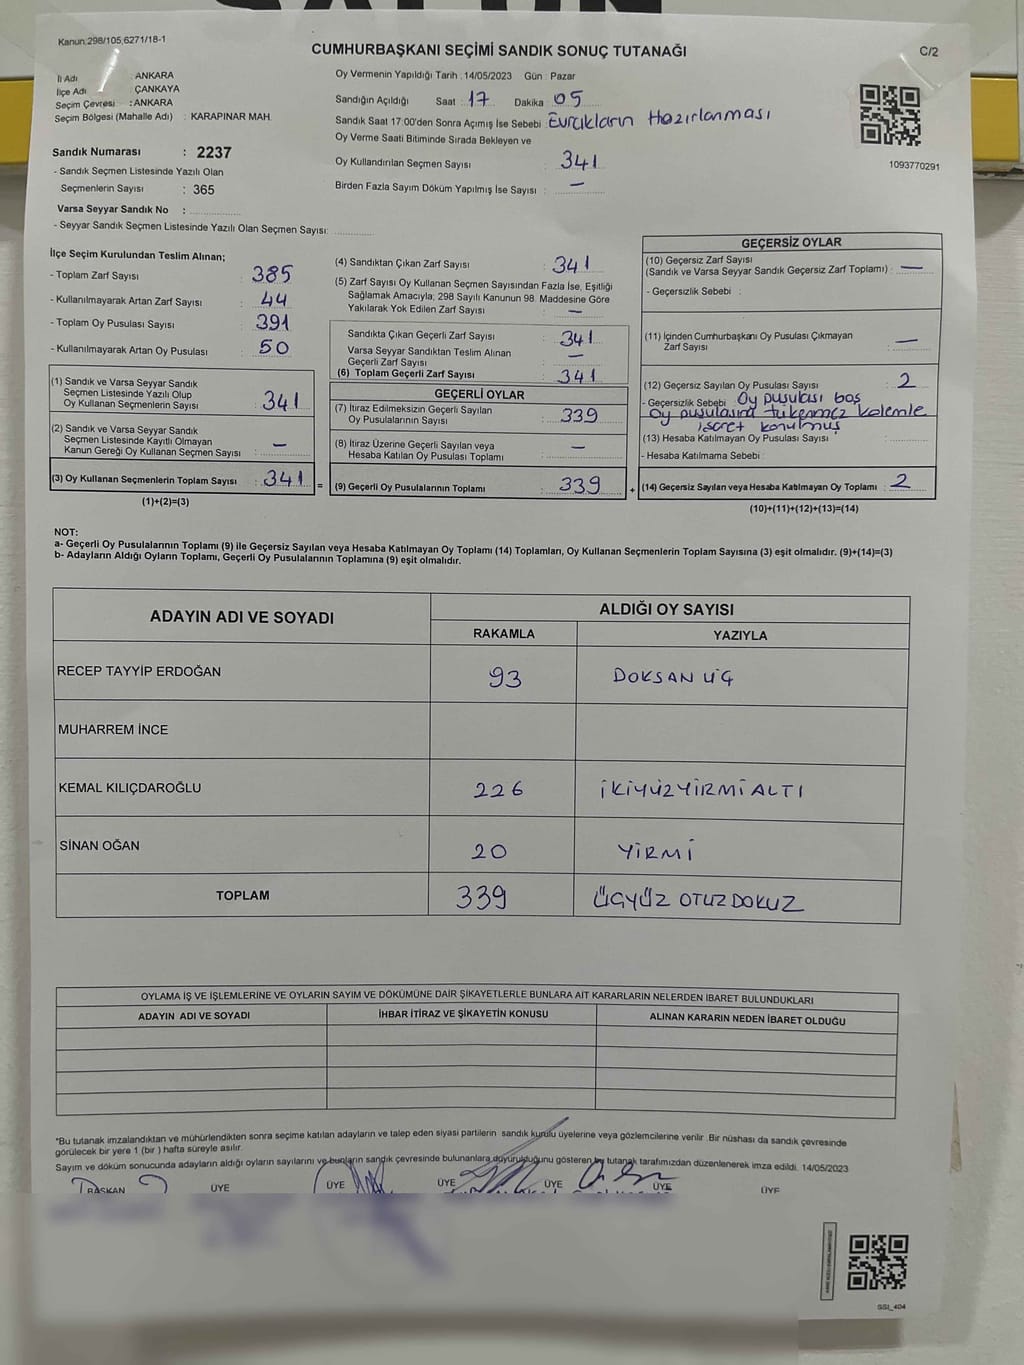 Kanun:298/105,6271/18-1
CUMHURBAŞKANI SEÇİMİ SANDIK SONUÇ TUTANAĞI
C/2
İl Adı : ANKARA
İlçe Adı : ÇANKAYA
Seçim Çevresi : ANKARA
Seçim Bölgesi (Mahalle Adı) : KARAPINAR MAH.
Sandık Numarası : 2237
- Sandık Seçmen Listesinde Yazılı Olan
Seçmenlerin Sayısı : 365
Varsa Seyyar Sandık No :
- Seyyar Sandık Seçmen Listesinde Yazılı Olan Seçmen Sayısı:
Oy Vermenin Yapıldığı Tarih : 14/05/2023 Gün : Pazar
Sandığın Açıldığı Saat : 17 Dakika : 05
Sandık Saat 17:00'den Sonra Açımış İse Sebebi : Evrakların Hazırlanması
Oy Verme Saati Bitiminde Sırada Bekleyen ve
Oy Kullandırılan Seçmen Sayısı : 341
Birden Fazla Sayım Döküm Yapılmış İse Sayısı : —
1093770291
İlçe Seçim Kurulundan Teslim Alınan;
- Toplam Zarf Sayısı : 385
- Kullanılmayarak Artan Zarf Sayısı : 44
- Toplam Oy Pusulası Sayısı : 391
- Kullanılmayarak Artan Oy Pusulası : 50
(1) Sandık ve Varsa Seyyar Sandık
Seçmen Listesinde Yazılı Olup
Oy Kullanan Seçmenlerin Sayısı : 341
(2) Sandık ve Varsa Seyyar Sandık
Seçmen Listesinde Kayıtlı Olmayan
Kanun Gereği Oy Kullanan Seçmen Sayısı : —
(3) Oy Kullanan Seçmenlerin Toplam Sayısı : 341
(1)+(2)=(3)
(4) Sandıktan Çıkan Zarf Sayısı : 341
(5) Zarf Sayısı Oy Kullanan Seçmen Sayısından Fazla İse, Eşitliği
Sağlamak Amacıyla, 298 Sayılı Kanunun 98. Maddesine Göre
Yakılarak Yok Edilen Zarf Sayısı : —
Sandıkta Çıkan Geçerli Zarf Sayısı : 341
Varsa Seyyar Sandıktan Teslim Alınan
Geçerli Zarf Sayısı : —
(6) Toplam Geçerli Zarf Sayısı : 341
GEÇERLİ OYLAR
(7) İtiraz Edilmeksizin Geçerli Sayılan
Oy Pusulalarının Sayısı : 339
(8) İtiraz Üzerine Geçerli Sayılan veya
Hesaba Katılan Oy Pusulası Toplamı : —
= (9) Geçerli Oy Pusulalarının Toplamı : 339
GEÇERSİZ OYLAR
(10) Geçersiz Zarf Sayısı
(Sandık ve Varsa Seyyar Sandık Geçersiz Zarf Toplamı) : —
- Geçersizlik Sebebi :
(11) İçinden Cumhurbaşkanı Oy Pusulası Çıkmayan
Zarf Sayısı : —
(12) Geçersiz Sayılan Oy Pusulası Sayısı : 2
- Geçersizlik Sebebi : Oy pusulası boş
Oy pusulasına tükenmez kalemle
işaret konulmuş
(13) Hesaba Katılmayan Oy Pusulası Sayısı :
- Hesaba Katılmama Sebebi :
+ (14) Geçersiz Sayılan veya Hesaba Katılmayan Oy Toplamı : 2
(10)+(11)+(12)+(13)=(14)
NOT:
a- Geçerli Oy Pusulalarının Toplamı (9) ile Geçersiz Sayılan veya Hesaba Katılmayan Oy Toplamı (14) Toplamları, Oy Kullanan Seçmenlerin Toplam Sayısına (3) eşit olmalıdır. (9)+(14)=(3)
b- Adayların Aldığı Oyların Toplamı, Geçerli Oy Pusulalarının Toplamına (9) eşit olmalıdır.
ADAYIN ADI VE SOYADI ALDIĞI OY SAYISI
RAKAMLA YAZIYLA
RECEP TAYYİP ERDOĞAN 93 DOKSAN ÜÇ
MUHARREM İNCE
KEMAL KILIÇDAROĞLU 226 İKİYÜZYİRMİALTI
SİNAN OĞAN 20 YİRMİ
TOPLAM 339 ÜÇYÜZ OTUZDOKUZ
OYLAMA İŞ VE İŞLEMLERİNE VE OYLARIN SAYIM VE DÖKÜMÜNE DAİR ŞİKAYETLERLE BUNLARA AİT KARARLARIN NELERDEN İBARET BULUNDUKLARI
ADAYIN ADI VE SOYADI İHBAR İTİRAZ VE ŞİKAYETİN KONUSU ALINAN KARARIN NEDEN İBARET OLDUĞU
*Bu tutanak imzalandıktan ve mühürlendikten sonra seçime katılan adayların ve talep eden siyasi partilerin sandık kurulu üyelerine veya gözlemcilerine verilir. Bir nüshası da sandık çevresinde
görülecek bir yere 1 (bir ) hafta süreyle asılır.
Sayım ve döküm sonucunda adayların aldığı oyların sayılarını ve bunların sandık çevresinde bulunanlara duyurulduğunu gösteren bu tutanak tarafımızdan düzenlenerek imza edildi. 14/05/2023
BAŞKAN ÜYE ÜYE ÜYE ÜYE ÜYE ÜYE
SSİ_404